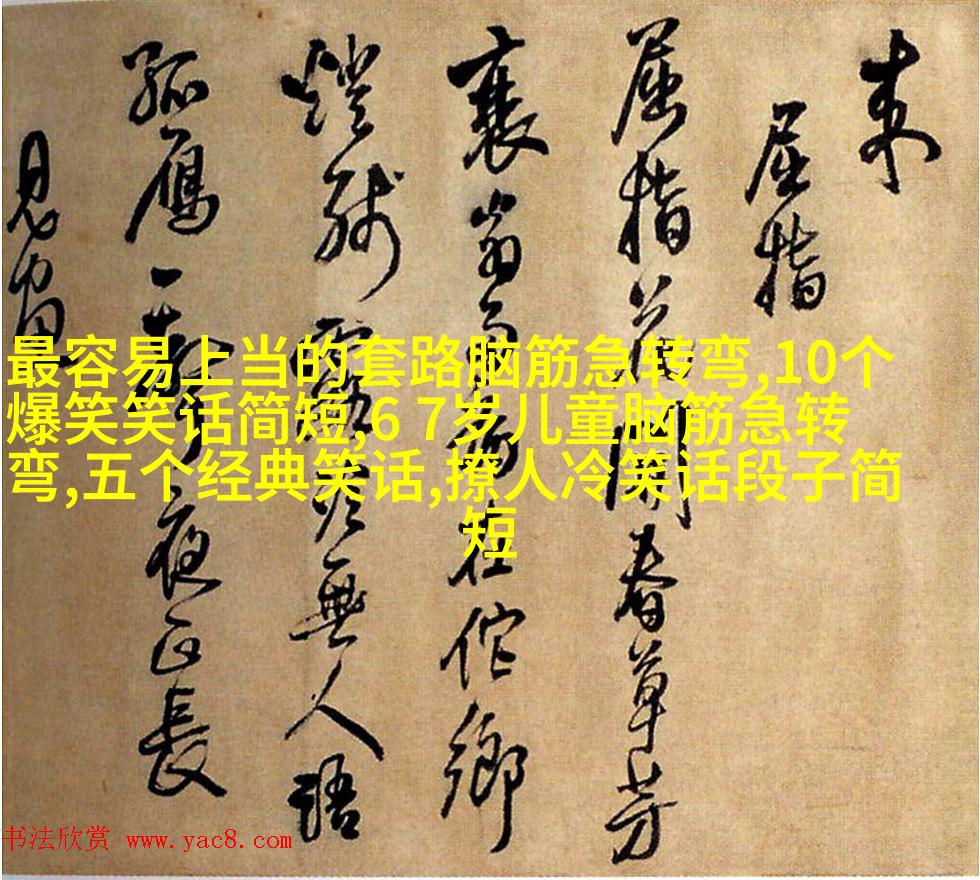 来
屈指
屈指花開春草芳
衰翁多病在佗鄉
燈殘無人語
孤雁一聲夜正長
最容易上当的套路脑筋急转弯,10个
爆笑笑话简短,6 7岁儿童脑筋急转
弯,五个经典笑话,撩人冷笑话段子简
短
书法欣赏 www.yac8.com